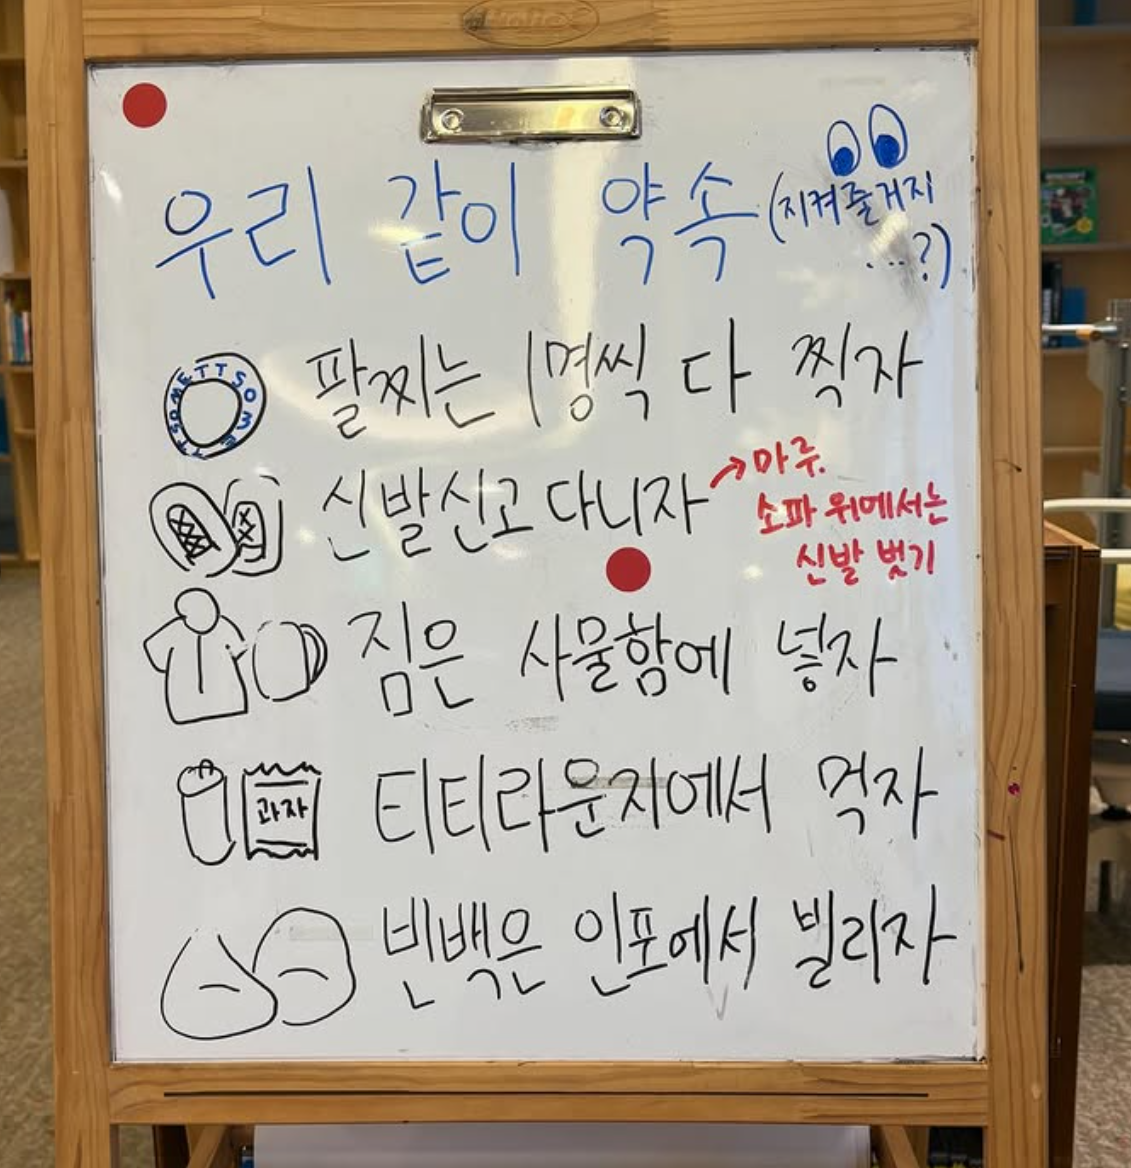 우리 같이 약속 (지켜줄거지
...?)
SOMETTSOMETT
팔찌는 1명씩 다 찍자
신발신고 다니자 → 마루.
소파 위에서는
신발 벗기
짐은 사물함에 넣자
과자
티티라운지에서 먹자
빈백은 인포에서 빌리자